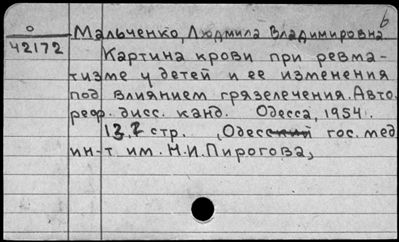 б
о Мальченко, Людмила Владимировна
42172
Картина крови при ревма-
тизме у детей и ее изменения
под влиянием грязелечения. Авто
реф. дисс. канд. Одесса, 1954.
стр. , гос. мед
ин-т им. Н.И.Пирогова,